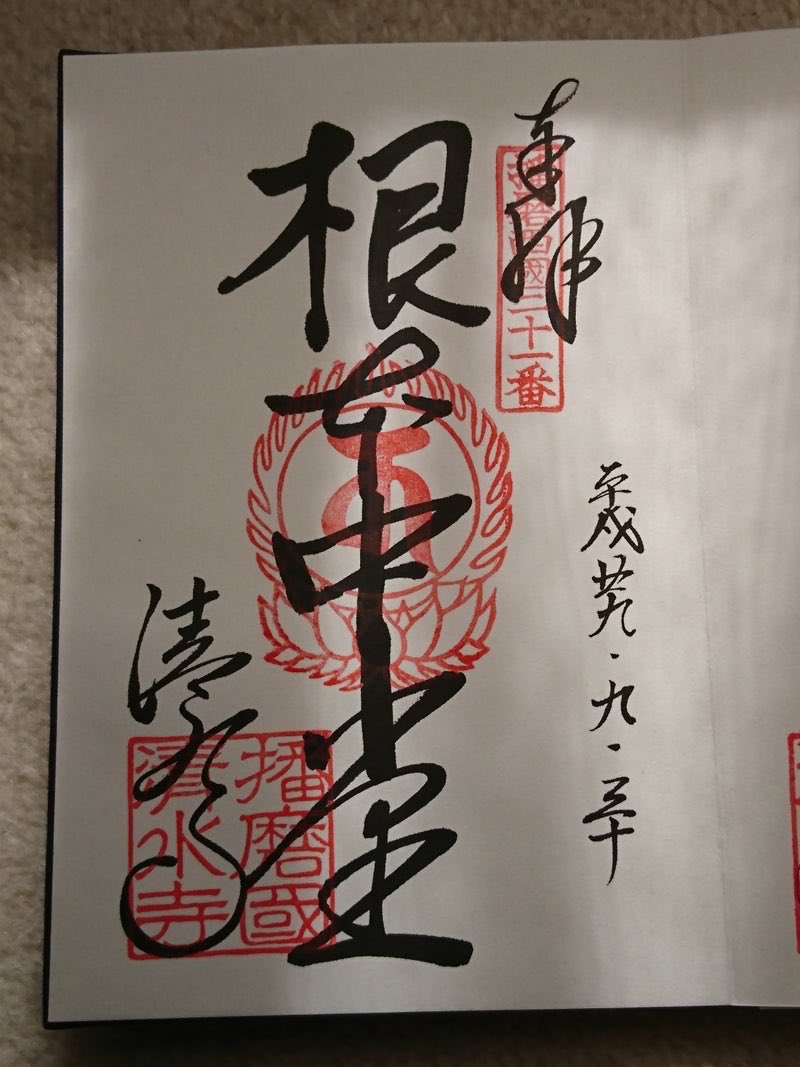 奉拝
播磨西國三十一番
平成廿九・九・三十
根本中堂
清水寺
播磨國
清水寺